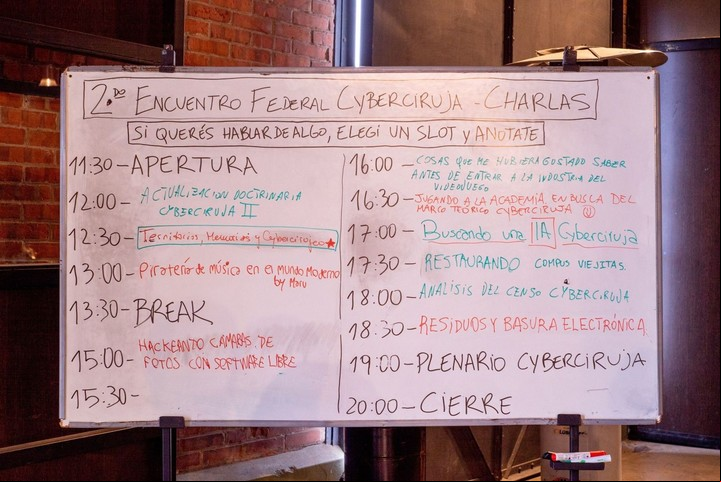 2.do ENCUENTRO FEDERAL CYBERCIRUJA - CHARLAS
SI QUERÉS HABLAR DE ALGO, ELEGI UN SLOT y ANOTATE
11:30 - APERTURA
12:00 - ACTUALIZACION DOCTRINARIA
CYBERCIRUJA II
12:30 - Territorios, Memorias y Cybercirujeo ★
13:00 - Piratería de música en el mundo Moderno
by Moru
13:30 - BREAK
15:00 - HACKEANDO CAMARAS DE
FOTOS CON SOFTWARE LIBRE
15:30 -
16:00 - COSAS QUE ME HUBIERA GUSTADO SABER
ANTES DE ENTRAR A LA INDUSTRIA DEL
VIDEOJUEGO
16:30 - JUGANDO A LA ACADEMIA, EN BUSCA DEL
MARCO TEÓRICO CYBERCIRUJA
17:00 - Buscando una IIA Cyberciruja
17:30 - RESTAURANDO COMPUS VIEJITAS.
18:00 - ANALISIS DEL CENSO CYBERCIRUJA
18:30 - RESIDUOS Y BASURA ELECTRÓNICA.
19:00 - PLENARIO CYBERCIRUJA
20:00 - CIERRE